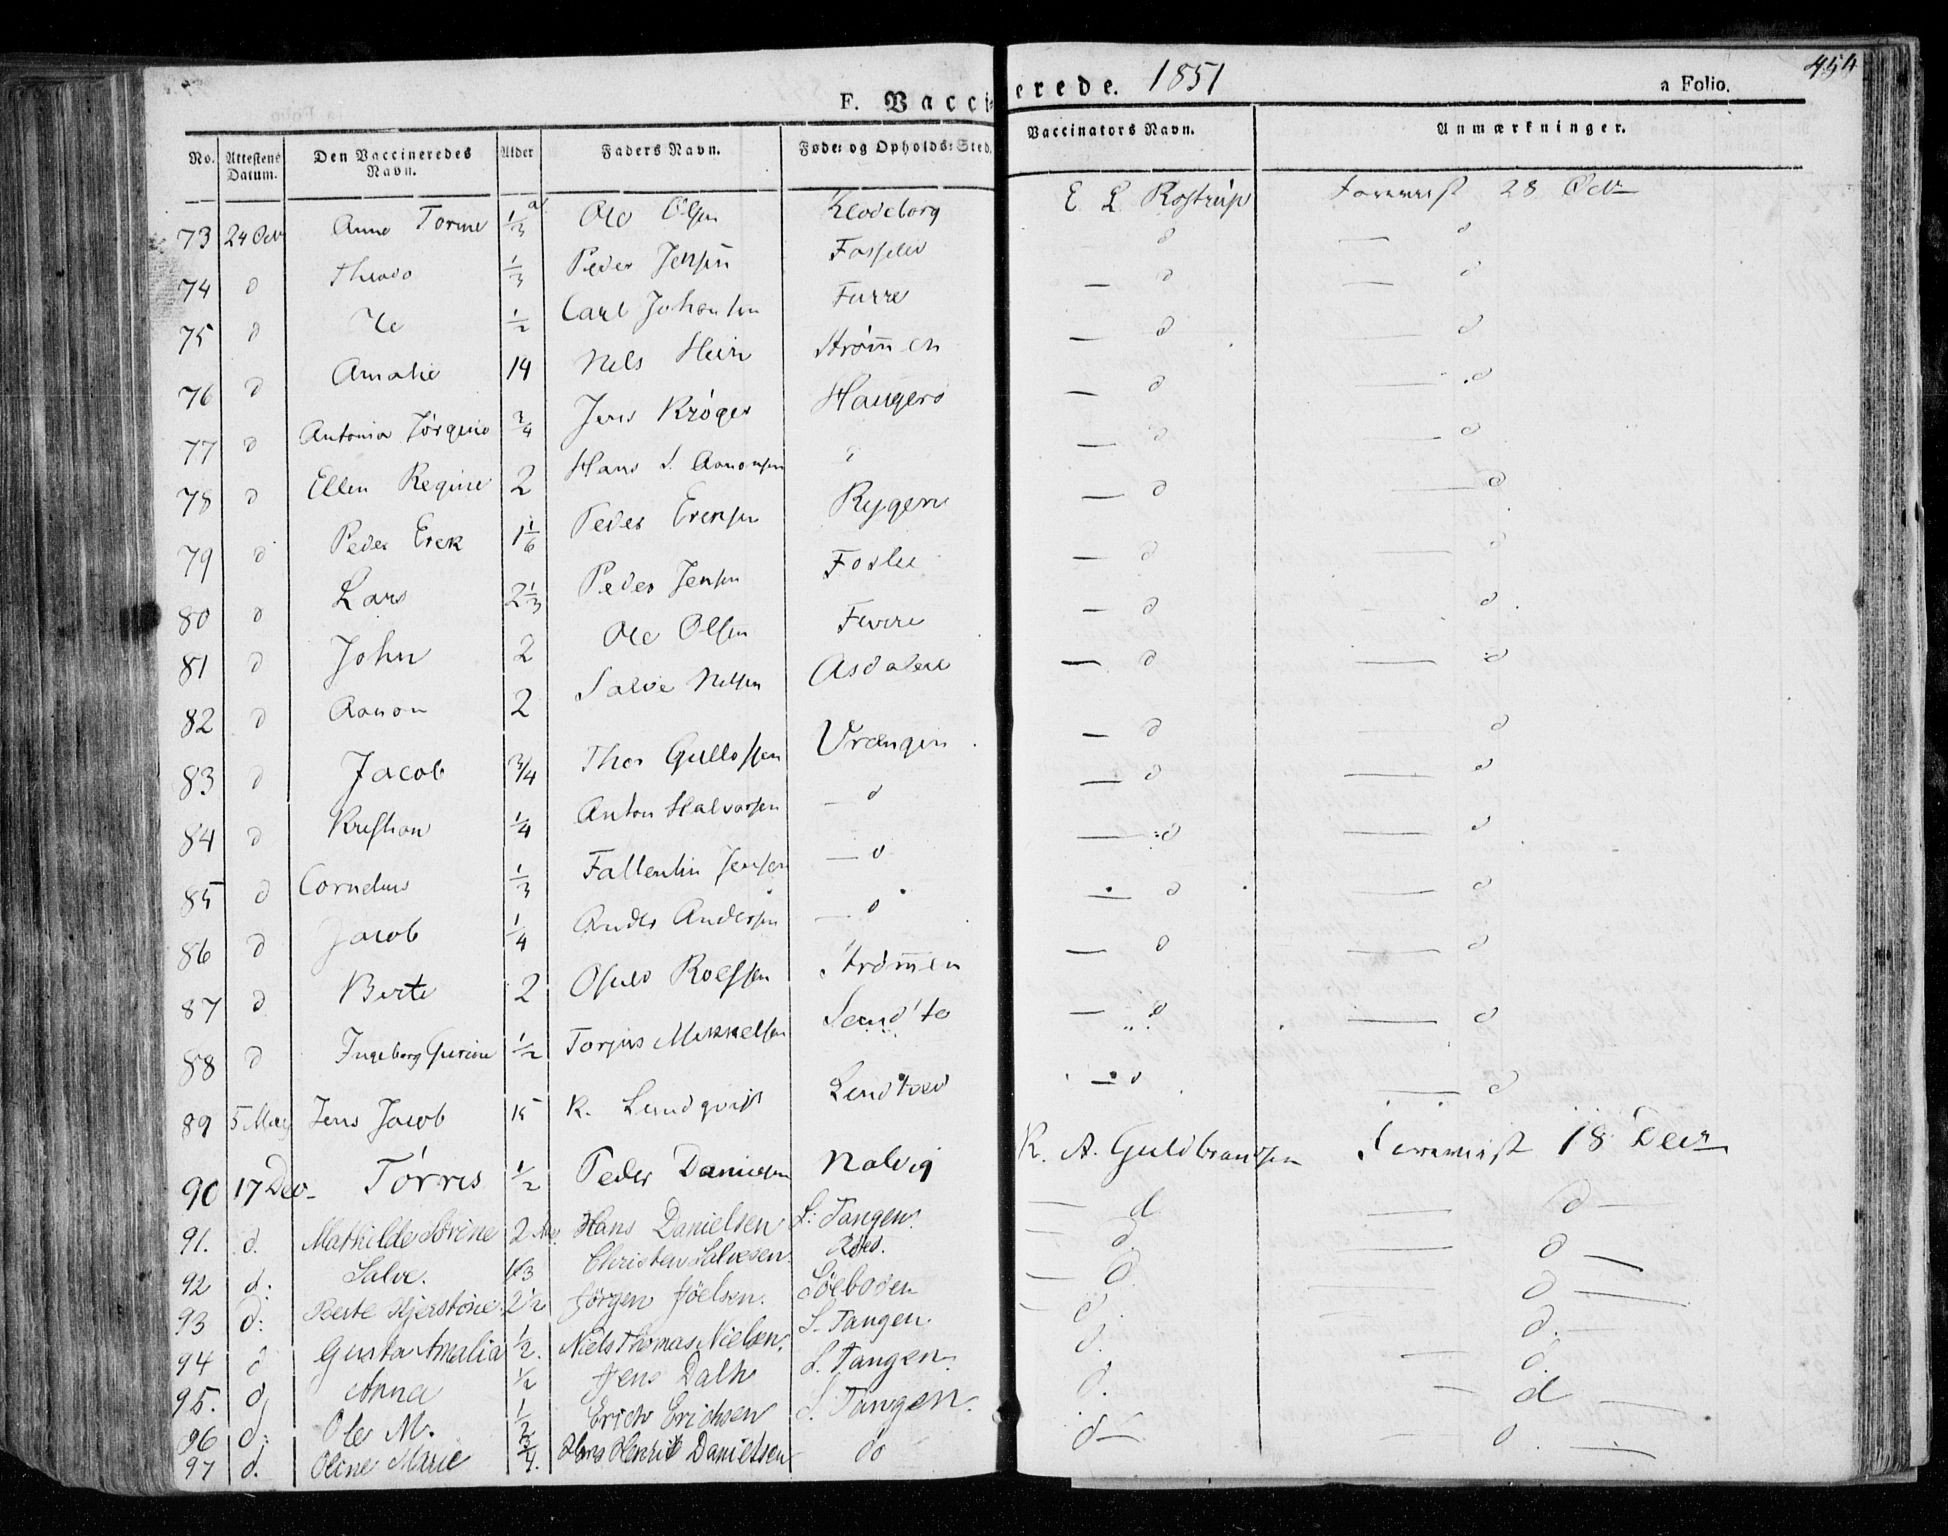 454
F. Vaccinerede. 1851 a Folio.
No. Attestens Datum. Den Vaccineredes Navn. Alder Faders Navn. Føde- og Opholds-Sted. Vaccinators Navn. Anmærkninger.
73 24 Octr Anne Torine 1/3 a Ole Olsen Klodeborg E. L. Rostrup Forevist 28 Octr
74 d 1/3 Peder Jensen — d — d
75 d 1/2 Carl Johansen Furre — d — d
76 d Amalie 14 Nels Hein Strømen — d — d
77 d Antonia Jørgine 3/4 Jens Krøger Haugerø — d — d
78 d Ellen Regine 2 Hans S. Aanonsen — d — d
79 d Peder Erek 1 1/6 Peder Erensen Rygene — d — d
80 d Lars 2 1/3 Peder Jensen Foslei — d — d
81 d John 2 Ole Olsen — d — d
82 d Aanon 2 Salve Nelsen Asdalen — d — d
83 d Jacob 3/4 Thor Gullofsen Vrengen — d — d
84 d Kristian 1/4 Anton Halvorsen — d — d — d
85 d Cornelius 1/3 Fallentin Jensen — d — d — d
86 d Jacob 1/4 Anders Andersen — d — d — d
87 d Berte 2 Osuld Roelfsen Strømen — d — d
88 d Ingeborg Gurine 1/2 Torjus Mikkelsen — d — d
89 5 May Jens Jacob 15 K. Lundqvist — d — d
90 17 Dec Tørres 1/2 Peder Danielsen Nalvig K. A. Guldbrandsen Forevist 18 Decr
91. d. Mathilde Sørine 2 Hans Danielsen S: Tangen. — d — d —
92 d: Salve. 1/3 Christen Salvesen. — d. — d —
93 d: Berte Kjerstine 2 1/2 Jørgen Jöelsen. Söeboden — d. — d —
94 d Gusta Amalia 1/2. Niels Thomas Nielsen. S. Tangen. d. d. —
95. d, Anna 1/2 Jens Dalh S. Tangen. d. — d.
96 d: Ole M. 1/2 Erich Erichsen S. Tangen. d. — d —
97 d. Oline Marie 3/4. Hans Henrik Danielsen do d — d —